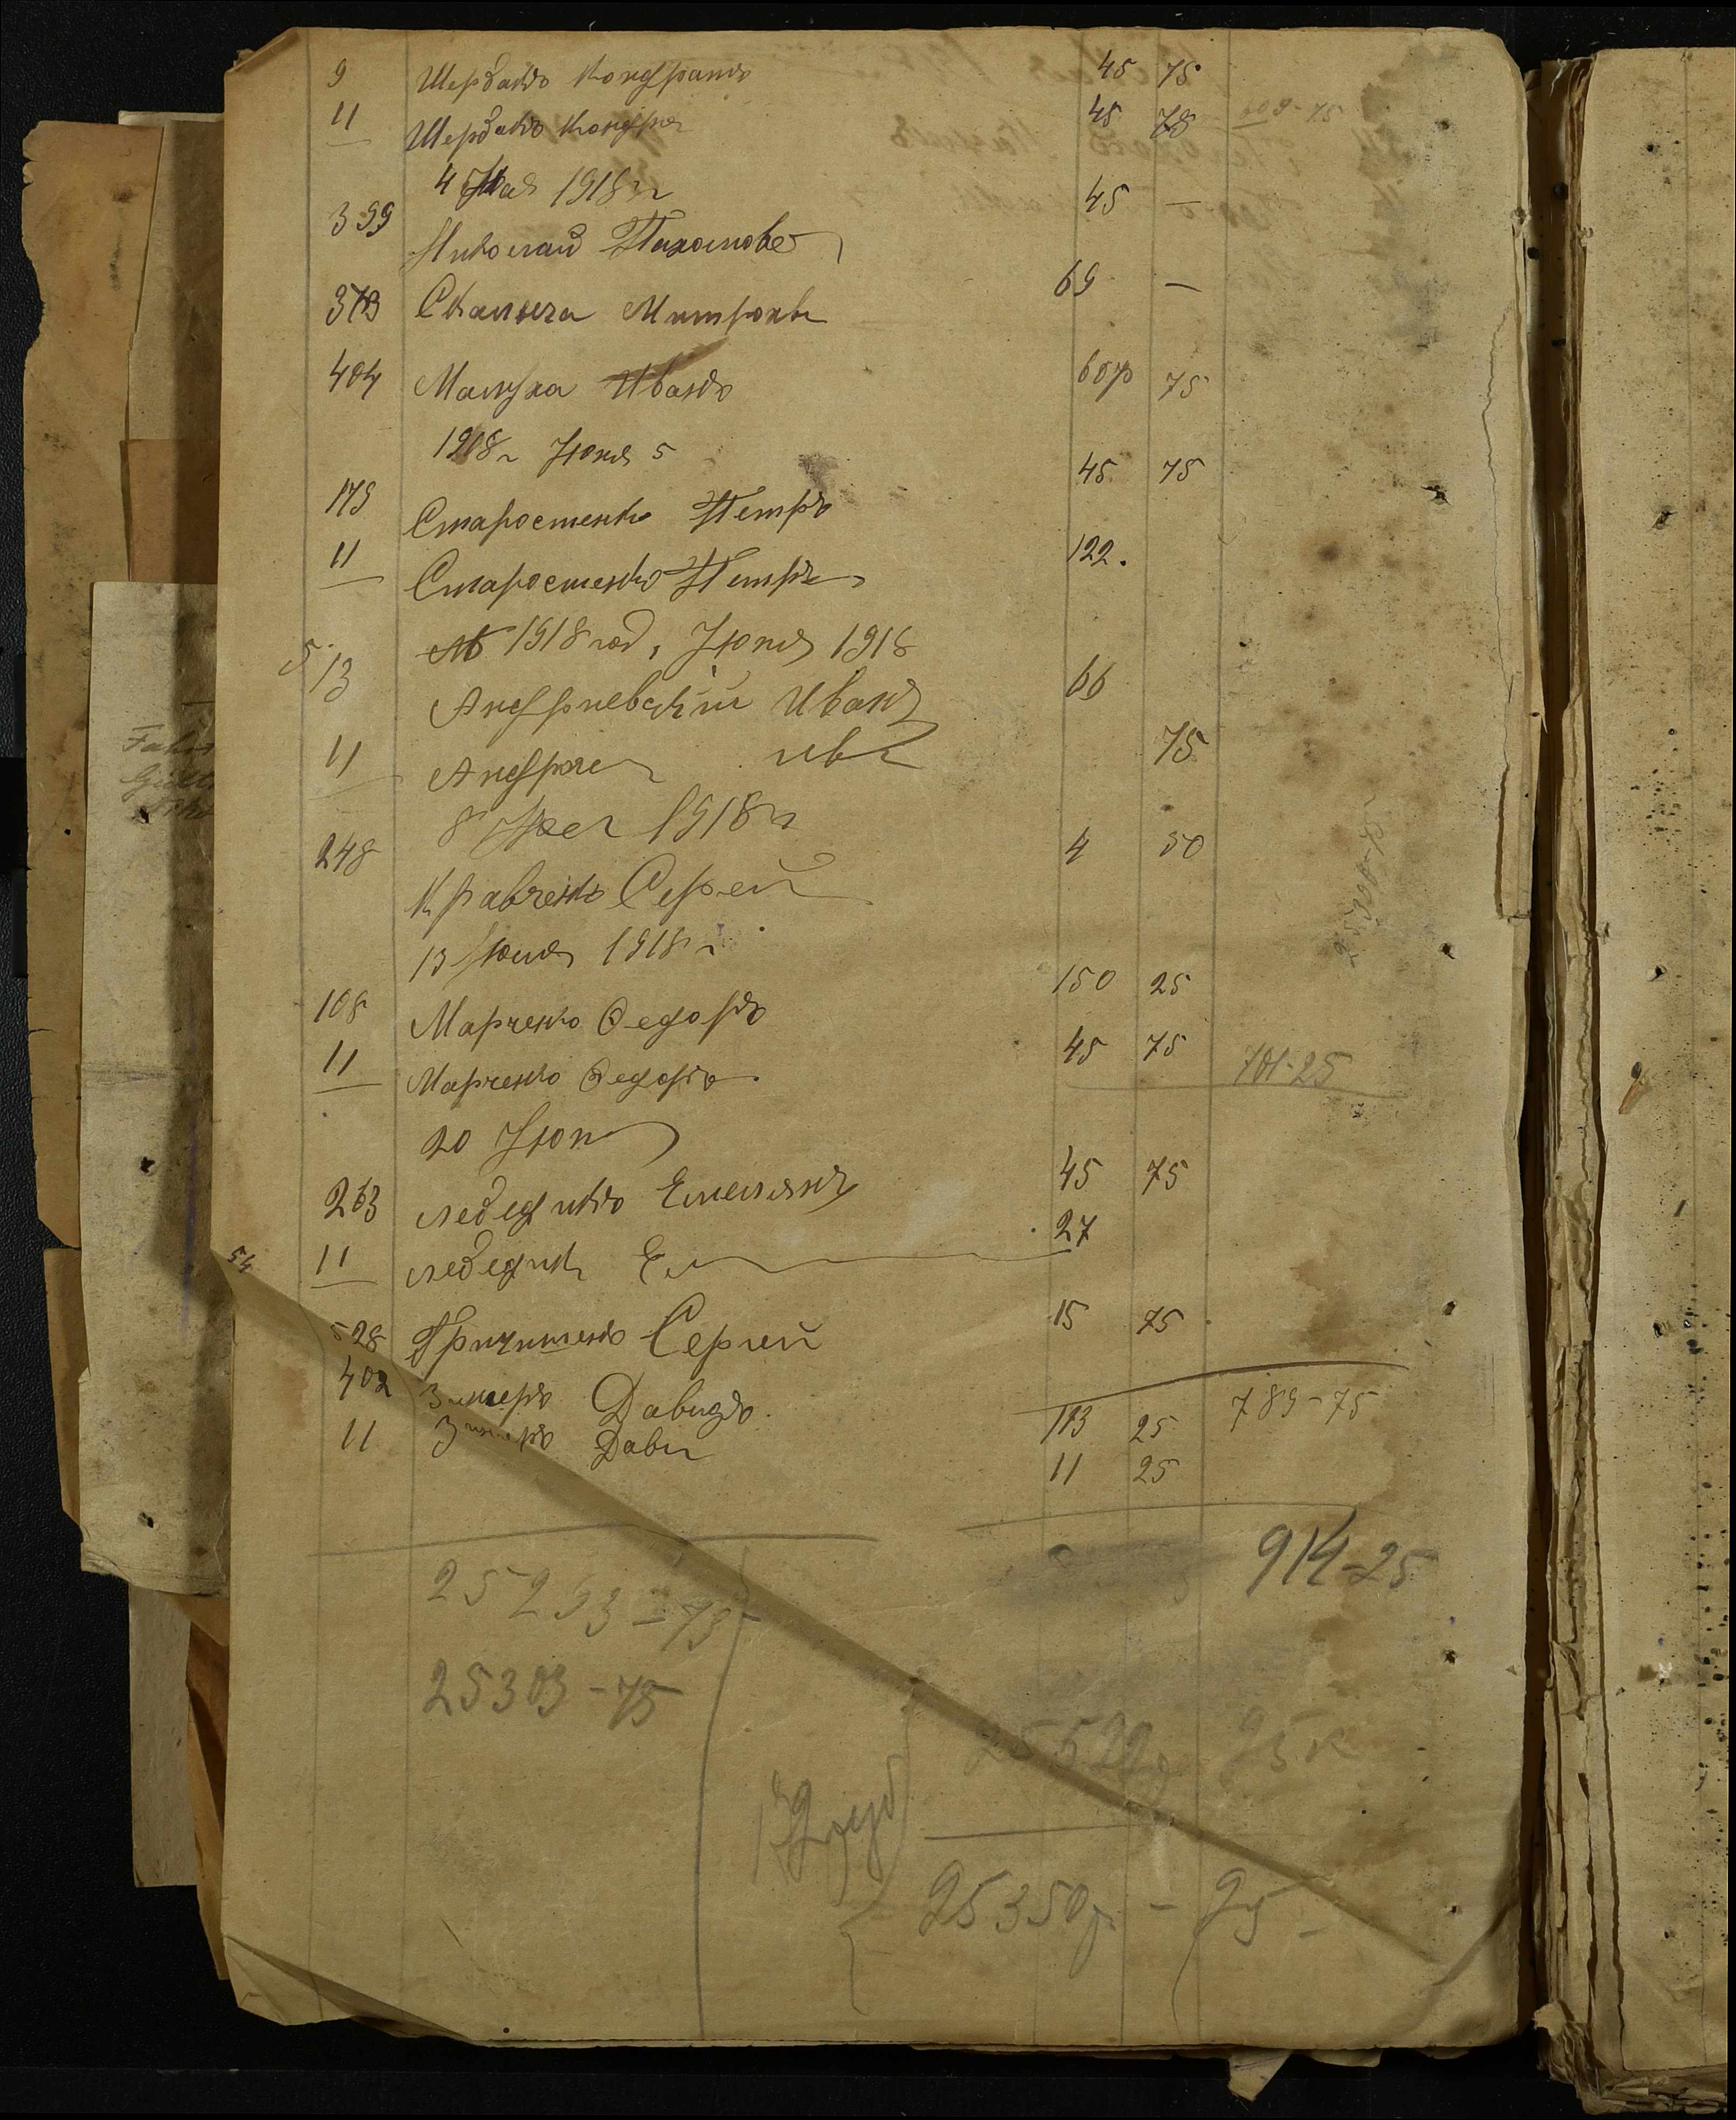 9 Щербакъ Кондратъ 45 75
11 Щербакъ Кондра 45 75 609-75
4 Мая 1918 г
399 Николай Пахомове 45 —
373 Скалыга Митрофан 69 —
404 Малуха Иванъ 60р 75
1918 г Июня 5
179 Старостенко Петръ 45 75
11 Старостенко Петръ 122.
1918 год, Июня 1918
513 Андриевский Иванъ 66
11 Андрие ив 75
8 1918 г
248 Кравченко Сергей 4 50
13 Июня 1918 г
108 Марченко Федоръ 150 25
11 Марченко Федоръ 45 75 701-25
20 Июн
263 Лебедикъ Емельянъ 45 75
54 11 Лебедик Ем 27
528 Гричишенко Сергей 15 75
402 Зимеръ Давидъ 113 25 789-75
11 Зимеръ Дави 11 25
914-25
25293-75
25303-75
25522р 25 к
25350р - 25